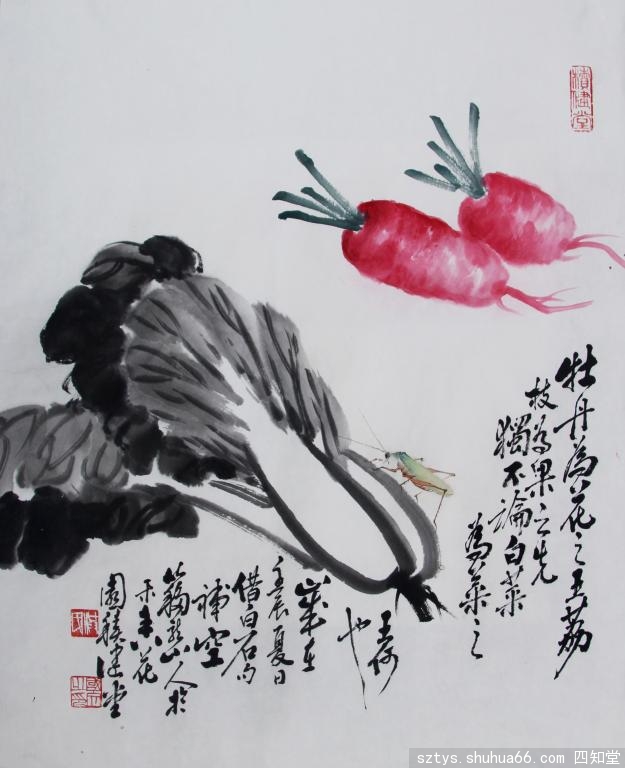 積健堂
牡丹為花之王荔
枝為果之先
獨不論白菜
為菜之
王何
也
歲在
壬辰夏日
借白石句
補空
山人於
花
園積健堂
sztys.shuhua66.com 四知堂